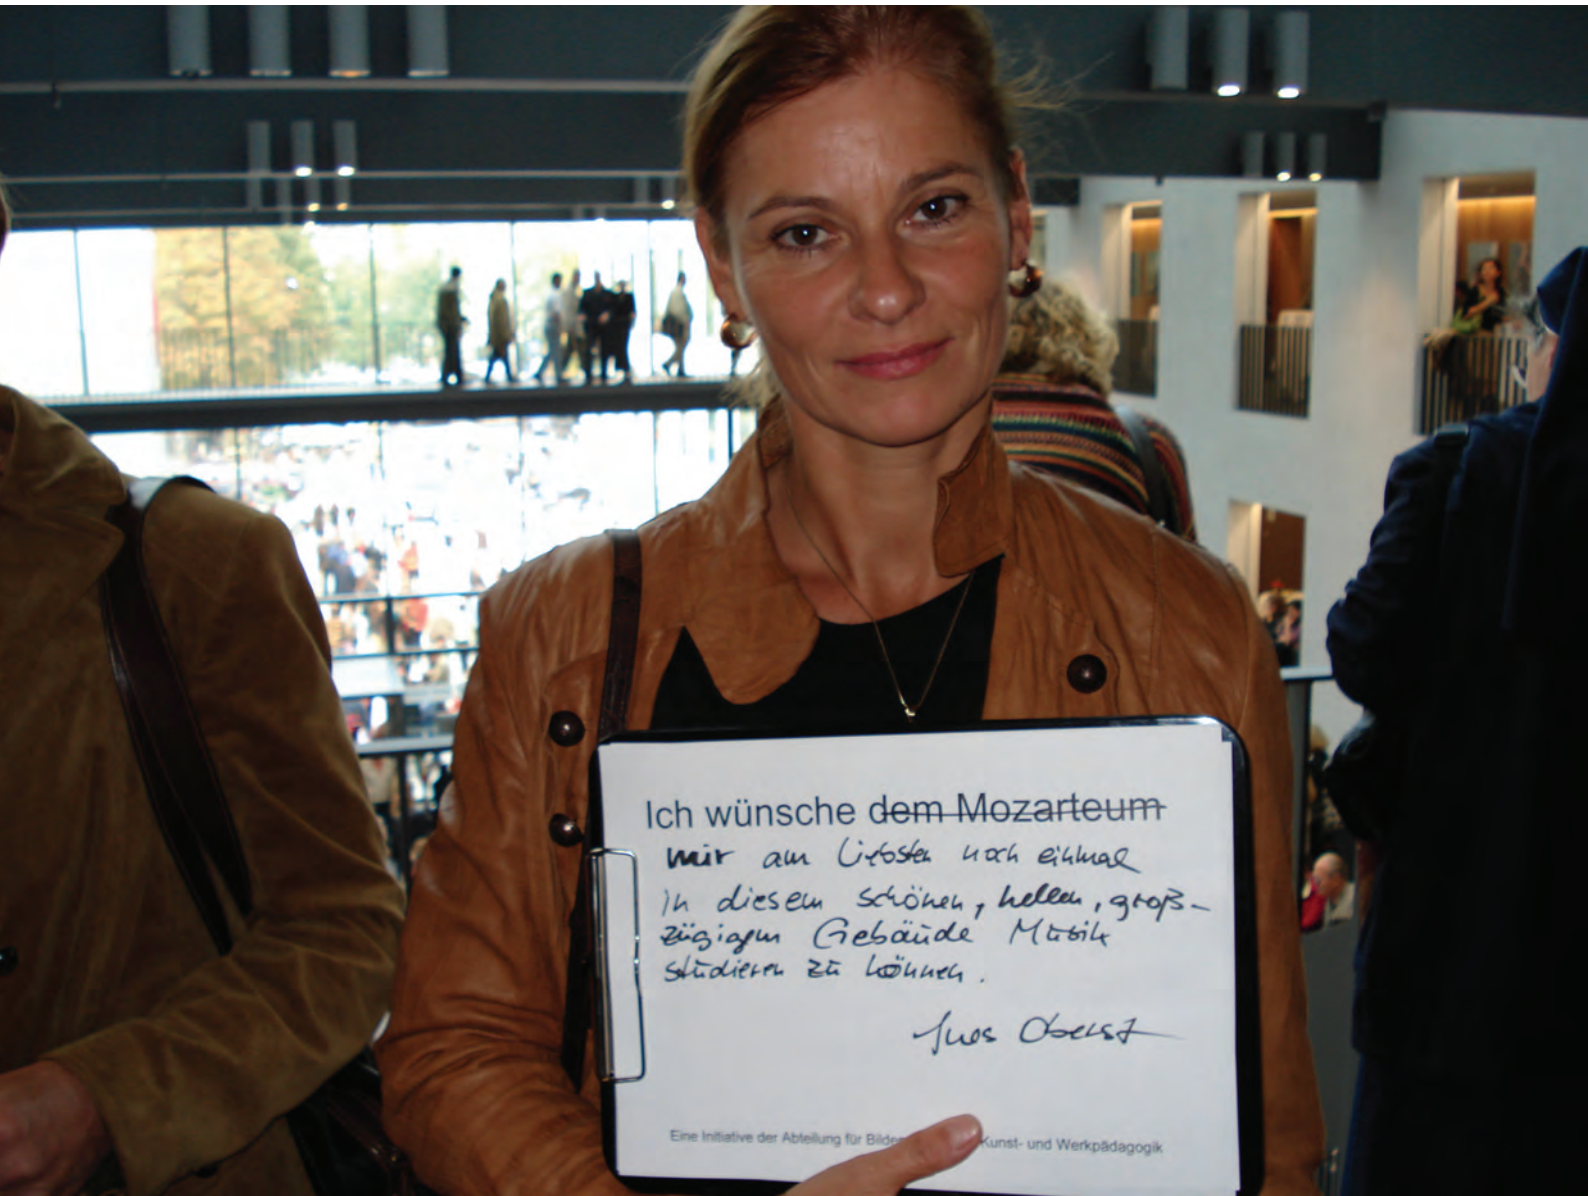 Ich wünsche dem Mozarteum
mir am liebsten noch einmal
in diesem schönen, hellen, groß-
zügigen Gebäude Musik
studieren zu können.
Ines Oberst
Eine Initiative der Abteilung für Kunst- und Werkpädagogik